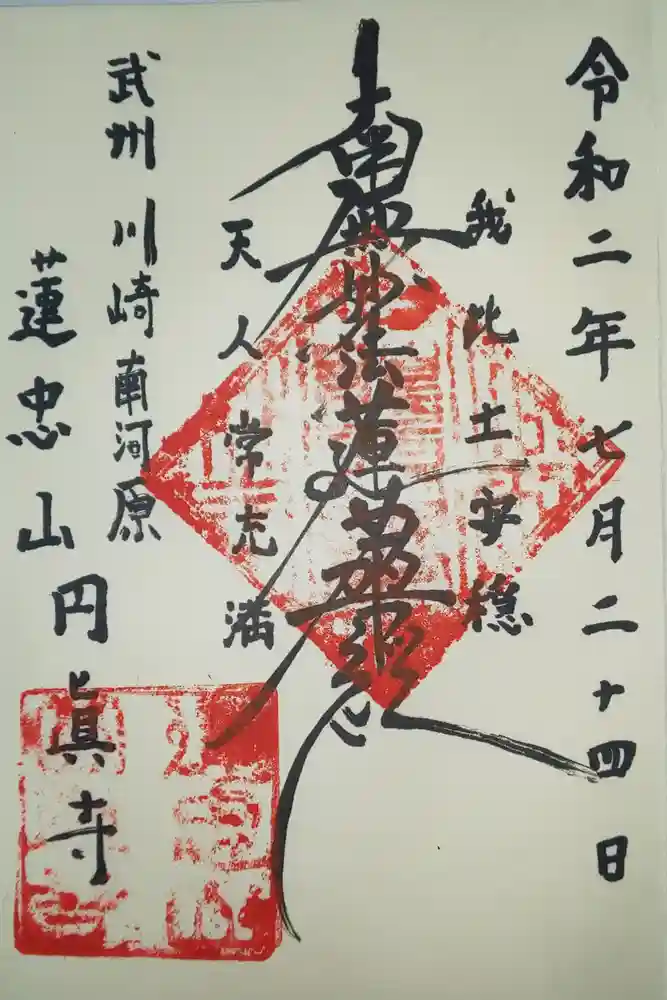 令和二年七月二十四日
我此土安穏
南無妙法蓮華経
天人常充満
武州川崎南河原
蓮忠山
円眞寺